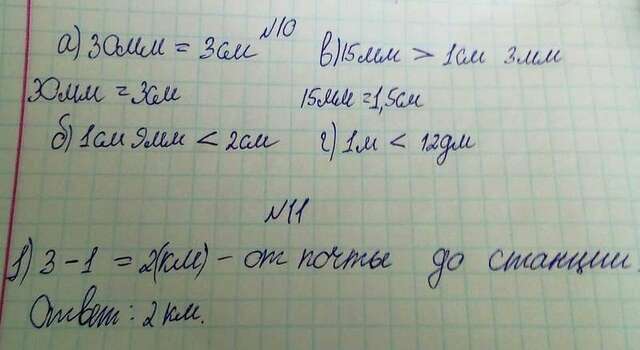 №10
а) 30мм = 3см в) 15мм > 1см 3мм
30мм = 3см 15мм = 1,5см
б) 1см 9мм < 2см г) 1м < 12дм
№11
1) 3 - 1 = 2(км) - от почты до станции.
Ответ: 2 км.